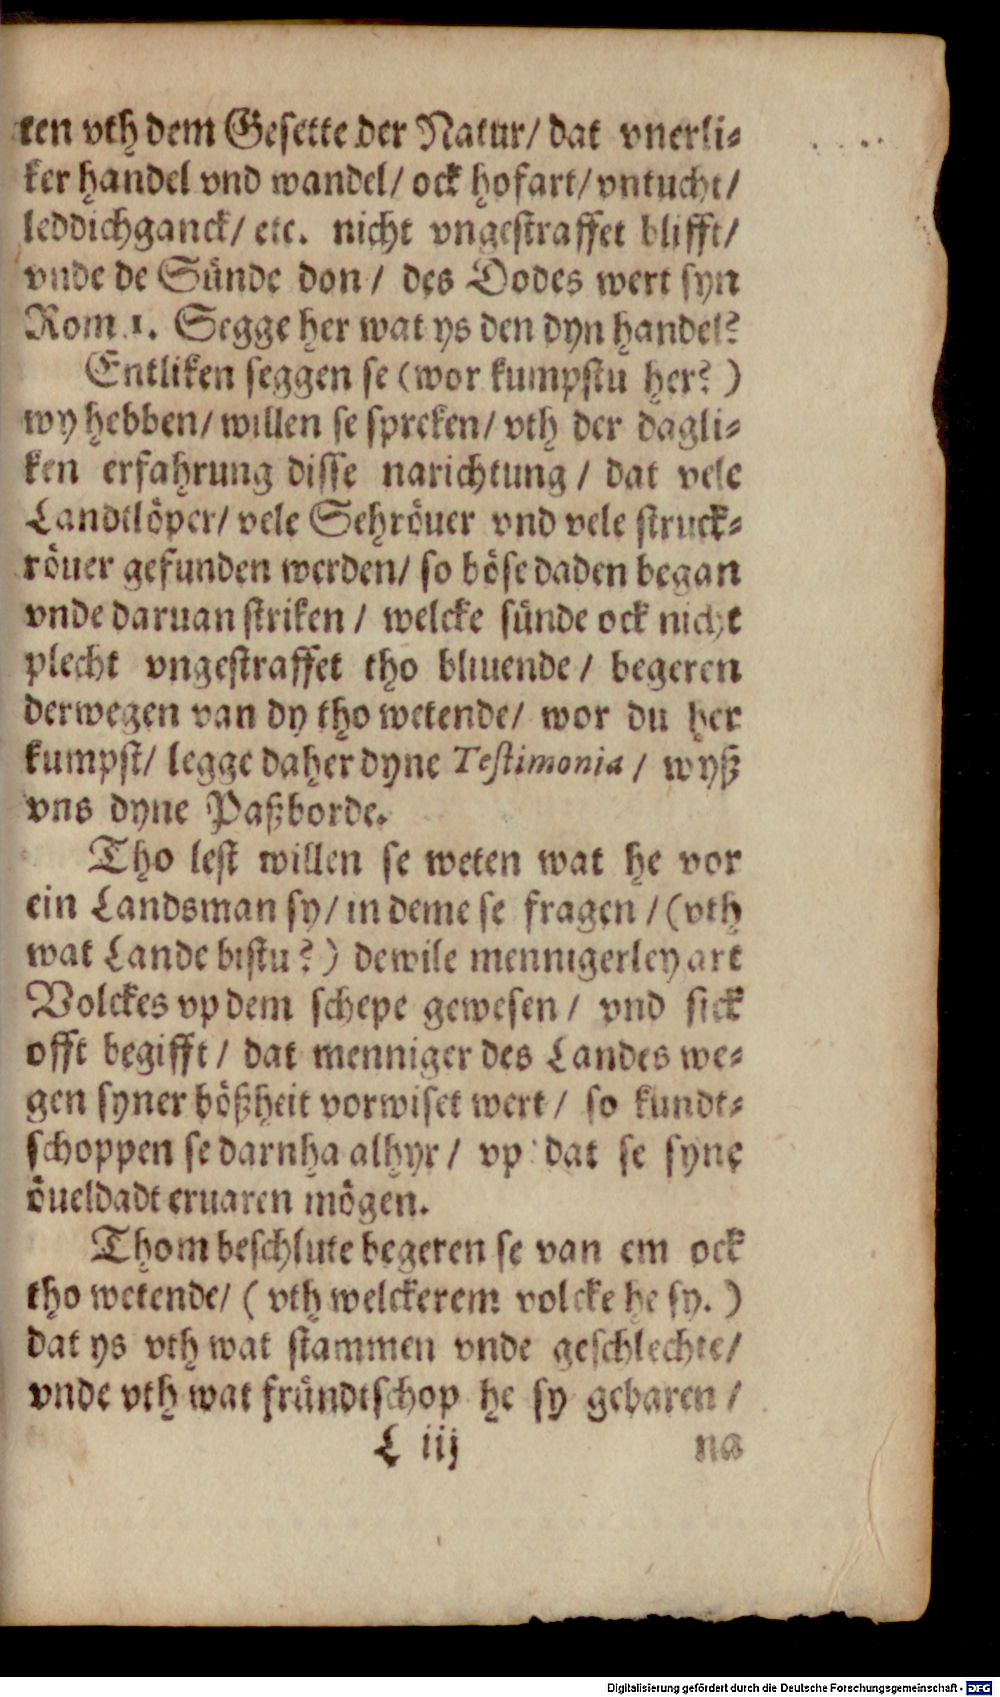 ten vth dem Gesette der Natur/ dat vnerli-
ker handel vnd wandel/ ock hofart/ vntucht/
leddichganck/ etc. nicht vngestraffet blifft/
vnde de Sünde don / des Dodes wert syn
Rom 1. Segge her wat ys den dyn handel?
Entliken seggen se (wor kumpstu her? )
wy hebben/ willen se spreken/ vth der dagli-
ken erfahrung disse narichtung / dat vele
Landtlöper/ vele Sehröuer vnd vele struck-
röuer gefunden werden/ so böse daden began
vnde daruan striken / welcke sünde ock nicht
plecht vngestraffet tho bliuende / begeren
derwegen van dy tho wetende/ wor du her
kumpst/ legge daher dyne Testimonia / wyß
vns dyne Paßborde.
Tho lest willen se weten wat he vor
ein Landsman sy/ in deme se fragen / (vth
wat Lande bistu? ) dewile mennigerley art
Volckes vp dem schepe gewesen / vnd sick
offt begifft / dat menniger des Landes we-
gen syner bößheit vorwiset wert / so kundt-
schoppen se darnha alhyr / vp dat se syne
öueldadt eruaren mögen.
Thom beschlute begeren se van em ock
tho wetende/ ( vth welckerem volcke he sy. )
dat ys vth wat stammen vnde geschlechte/
vnde vth wat fründtschop he sy gebaren /
L iij na
Digitalisierung gefördert durch die Deutsche Forschungsgemeinschaft - DFG